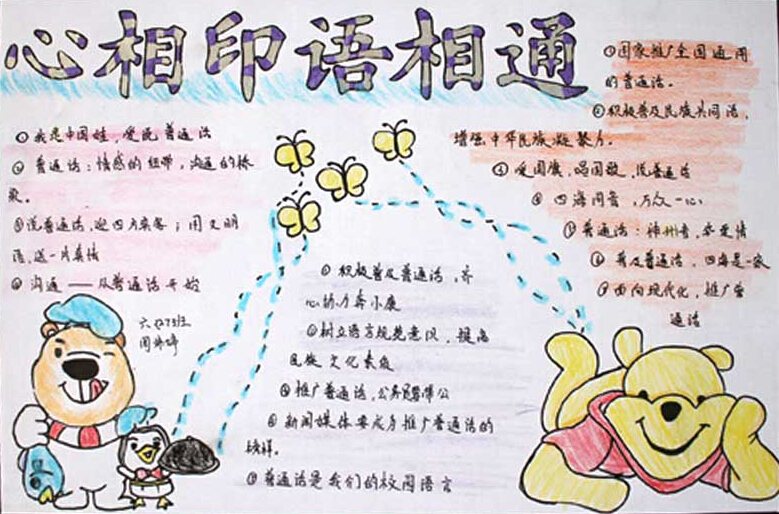 心相印语相通
①我是中国娃，爱说普通话
②普通话：情感的纽带，沟通的桥
梁。
③说普通话，迎四方宾客；用文明
语，送一片真情
④沟通——从普通话开始
六、7班
①积极普及普通话，齐
心协力奔小康
②树立语言规范意识，提高
民族文化素质
推广普通话，公务员要带头
新闻媒体要成为推广普通话的
榜样。
普通话是我们的校园语言
①国家推广全国通用
的普通话。
②积极普及民族共同语，
增强中华民族凝聚力。
爱国旗，唱国歌，说普通话
四海同音，万众一心
普通话：神州音，华夏情
普及普通话，四海是一家
面向现代化，推广普
通话